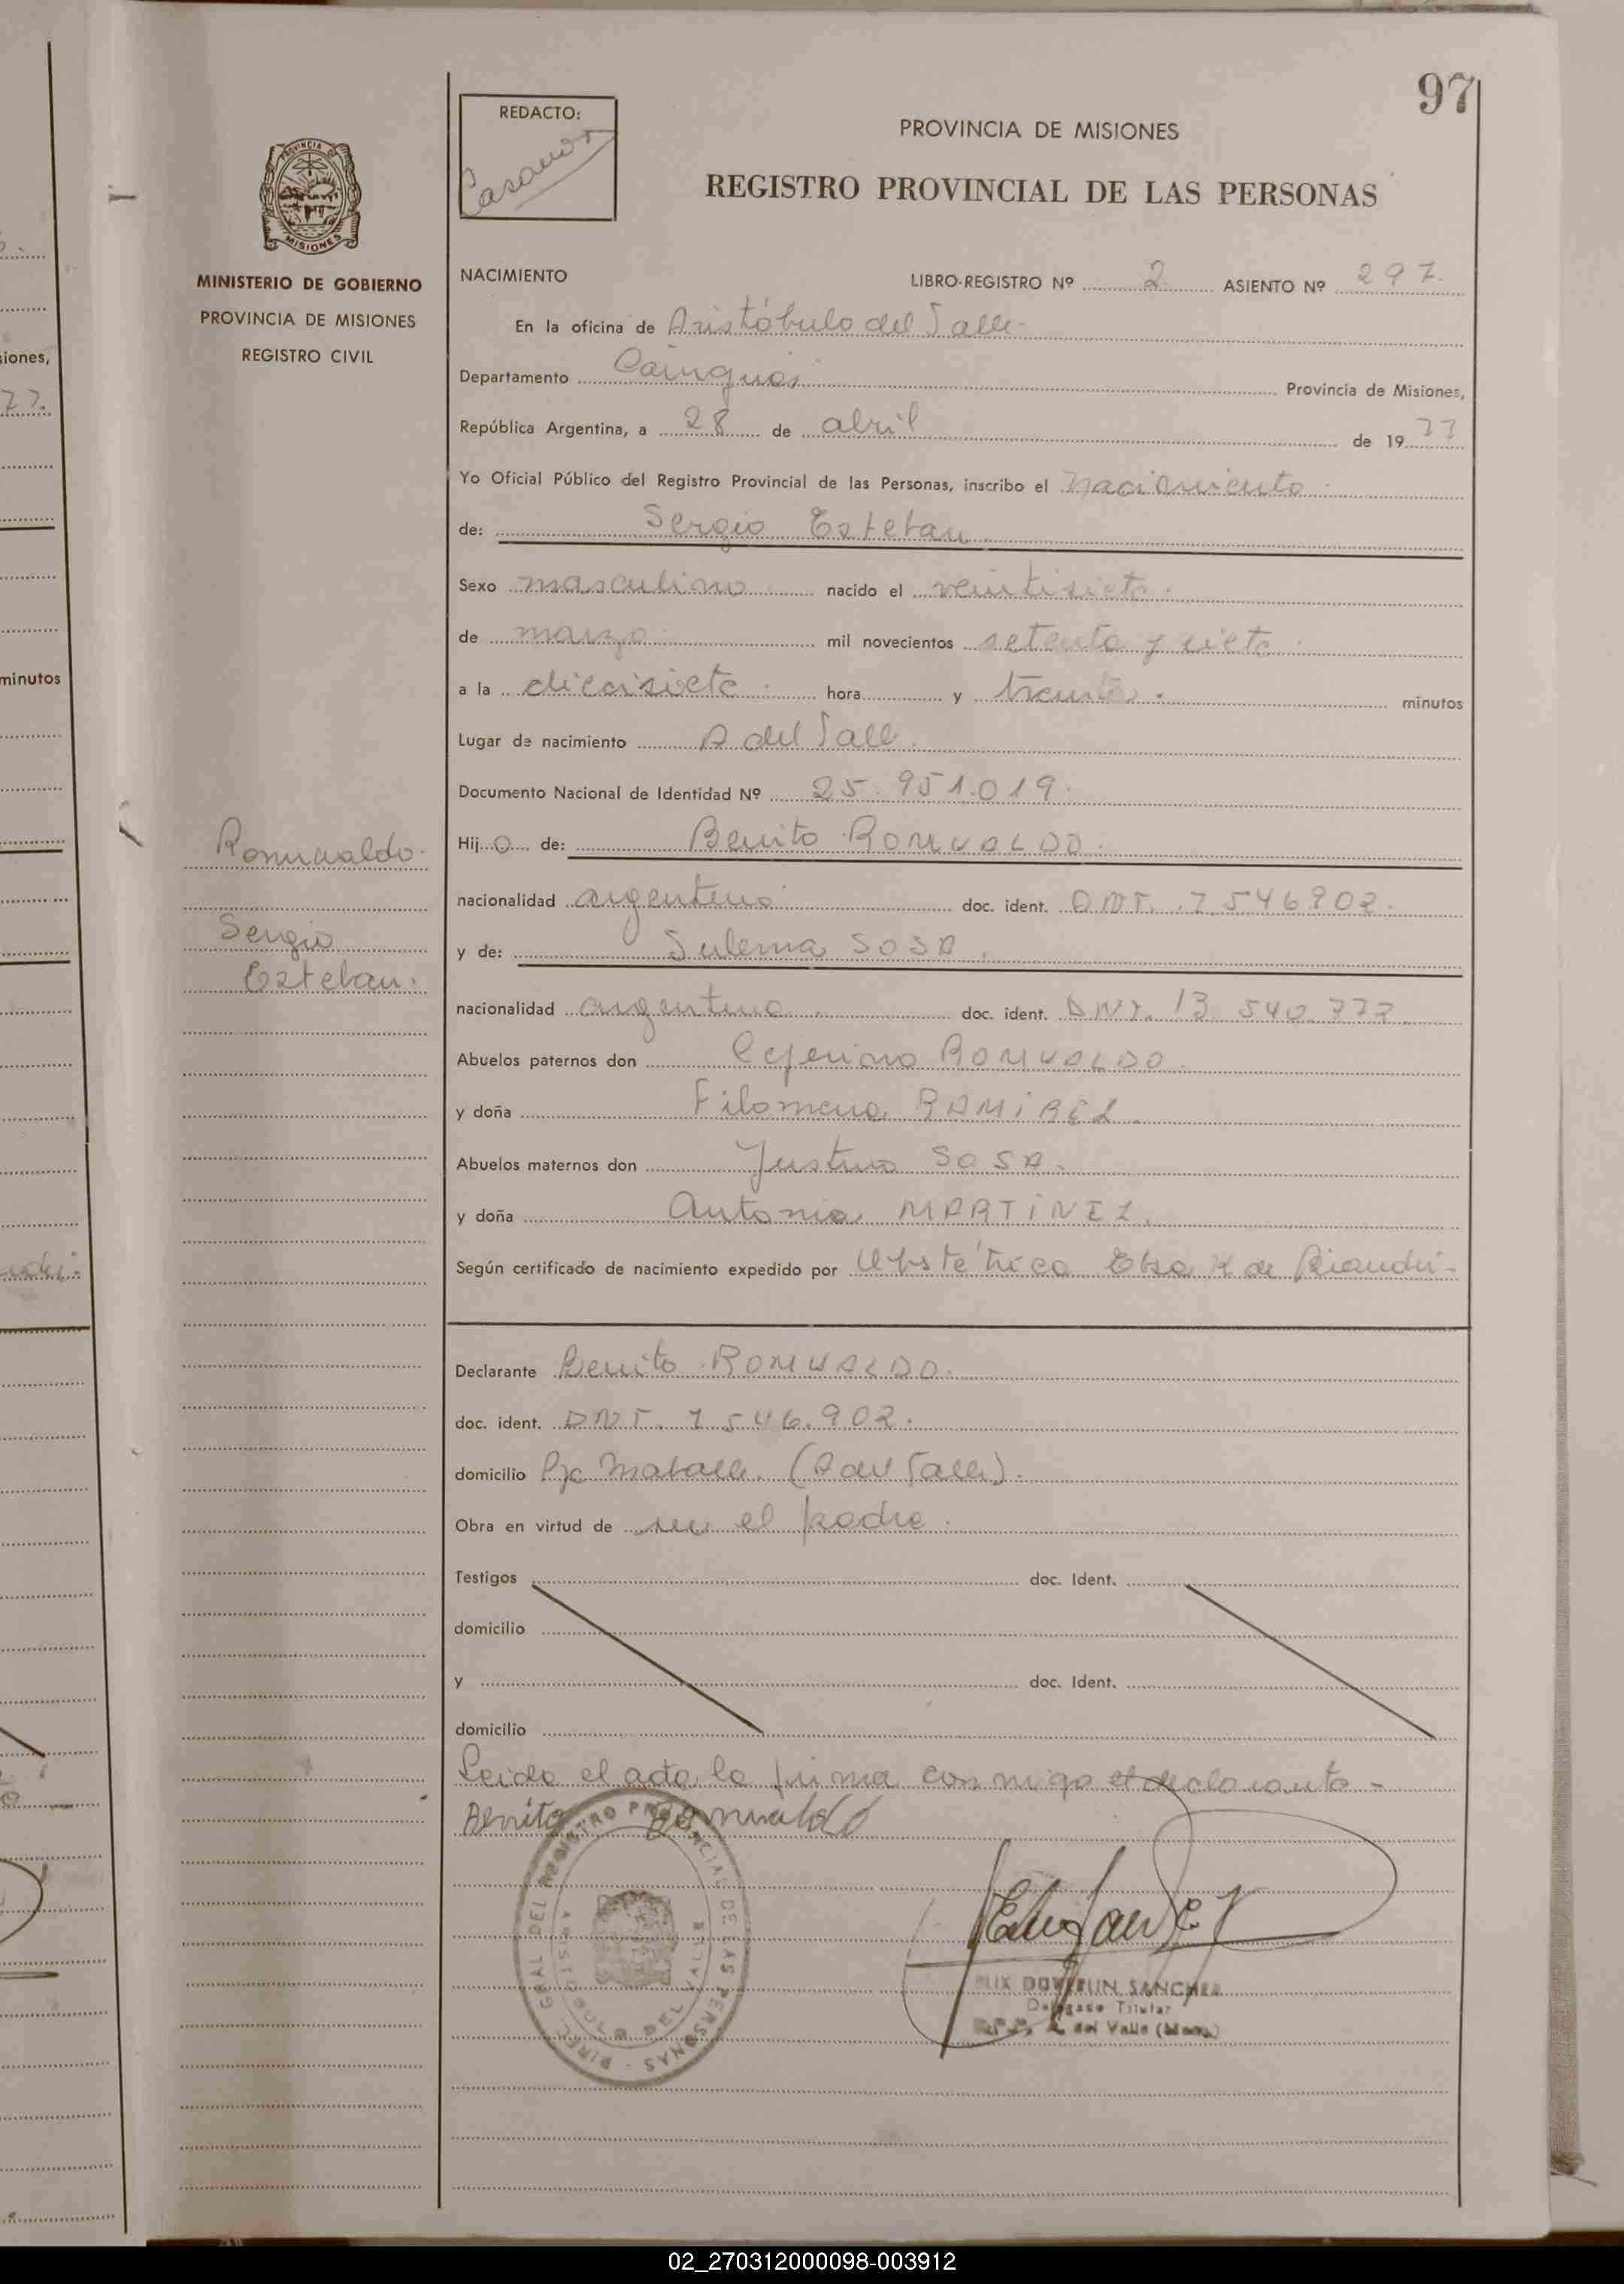 97
REDACTO:
PROVINCIA DE MISIONES
REGISTRO PROVINCIAL DE LAS PERSONAS
PROVINCIA
MISIONES
MINISTERIO DE GOBIERNO
PROVINCIA DE MISIONES
REGISTRO CIVIL
NACIMIENTO LIBRO-REGISTRO Nº 2 ASIENTO Nº 297.
En la oficina de Aristóbulo del Valle
Departamento Cainguás Provincia de Misiones,
República Argentina, a 28 de abril de 1977
Yo Oficial Público del Registro Provincial de las Personas, inscribo el nacimiento
de: Sergio Esteban
Sexo masculino nacido el veintisiete
de marzo mil novecientos setenta y siete
a la diecisiete hora y treinta minutos
Lugar de nacimiento A del Valle
Documento Nacional de Identidad Nº 25.951.019.
Hijo de: Benito ROMUALDO.
nacionalidad argentino doc. ident. DNI. 7.546902.
y de: Sulema SOSA
nacionalidad argentina doc. ident. DNI. 13.540.773
Abuelos paternos don Ceferino ROMUALDO.
y doña Filomena RAMIREZ
Abuelos maternos don Justino SOSA.
y doña Antonia MARTINEZ.
Según certificado de nacimiento expedido por Obstétrica Elsa de
Romualdo
Sergio
Esteban.
Declarante Benito ROMUALDO.
doc. ident. DNI. 7.546.902.
domicilio (A del Valle).
Obra en virtud de ser el padre.
Testigos doc. Ident.
domicilio
y doc. Ident.
domicilio
Leida el acta la firma conmigo el declarante-
Benito Romualdo
DIREC. GRAL DEL REGISTRO PROVINCIAL DE LAS PERSONAS
ARISTOBULO DEL VALLE
SANCHEZ
Delegado Titular
A. del Valle (Mnes.)
siones,
77.
minutos
02_270312000098-003912